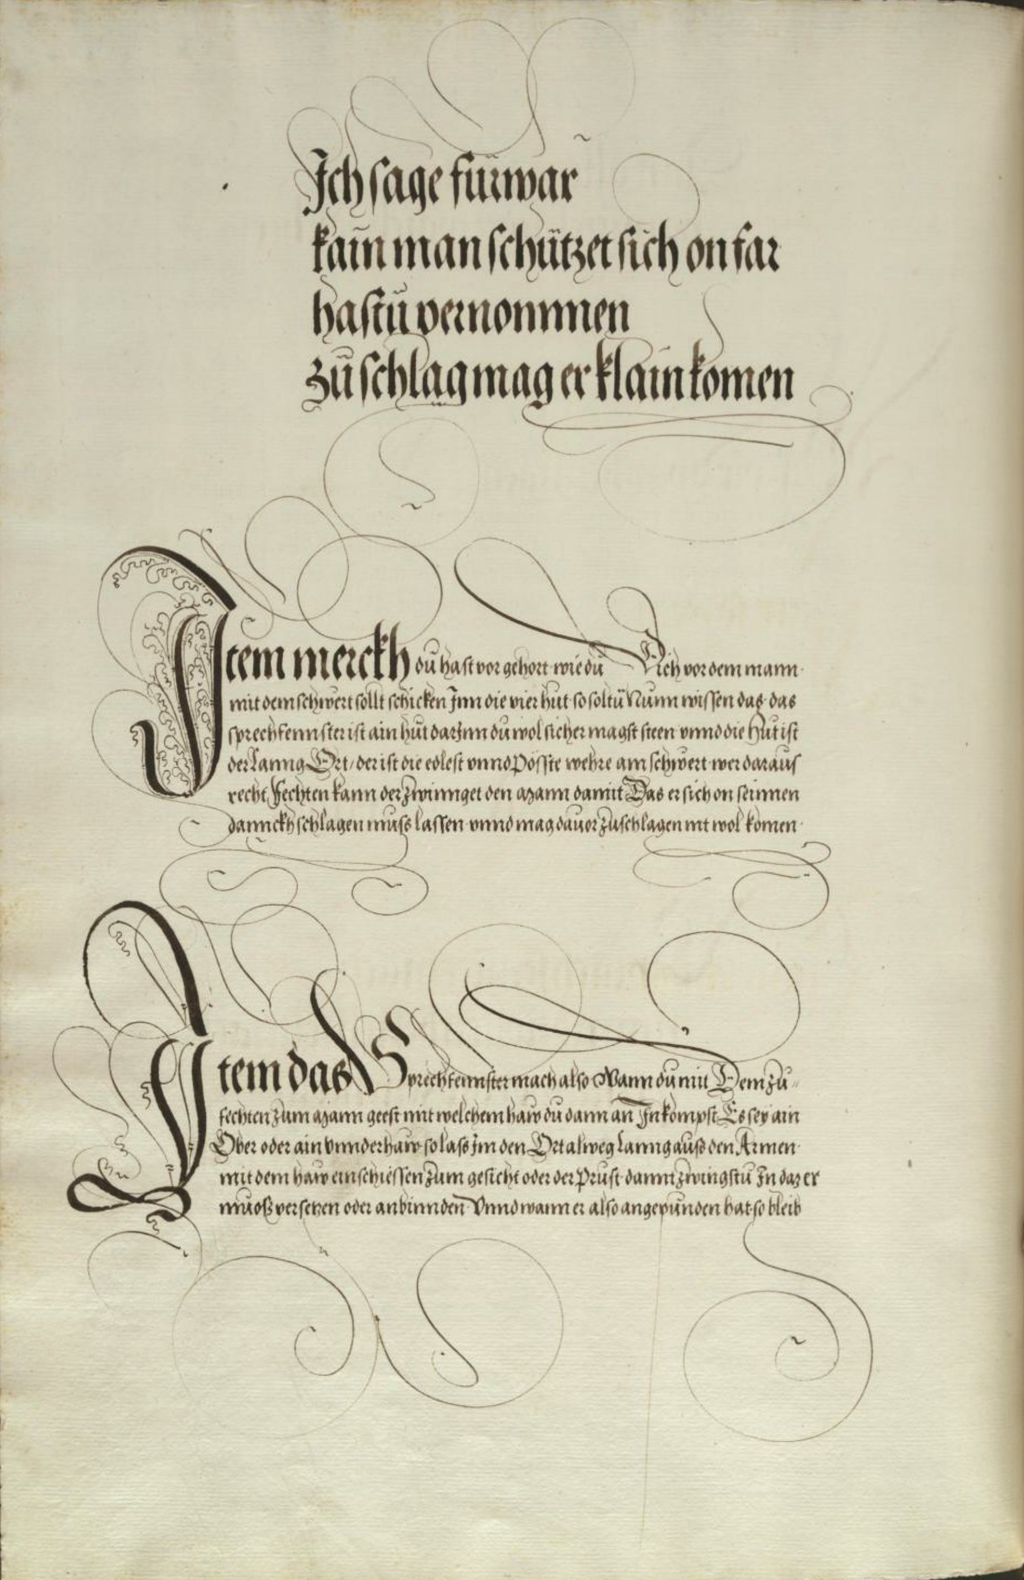 Ich sage fürwar
kain man schützet sich on far
hastu vernommen
zu schlag mag er klain komen
Item merckh du hast vor gehort wie du Dich vor dem mann
mit dem schwert sollt schicken Inn die vier hut so soltu Nunn wissen das das
sprechfennster ist ain hut darInn du wol sicher magst steen vnnd die Hut ist
der Lanng Ort / der ist die edlest vnnd Posste wehre am schwert wer daraus
recht Fechten kann der zwinnget den Mann damit Das er sich on seinnen
dannckh schlagen muss lassen vnnd mag dauor zu schlagen nit wol komen
Item das Sprechfennster mach also Wann du mit Dem zu-
fechten zum Mann geest mit welchem haw du dann an In kompst Es sey ain
Ober oder ain vnnderhaw so lass Im den Ort alweg Lanng auss den Armen
mit dem haw einschiessen zum gesicht oder der Prust dann zwingstu In das er
muosz versetzen oder anbinnden Vnnd wann er also angepunden hat so bleib